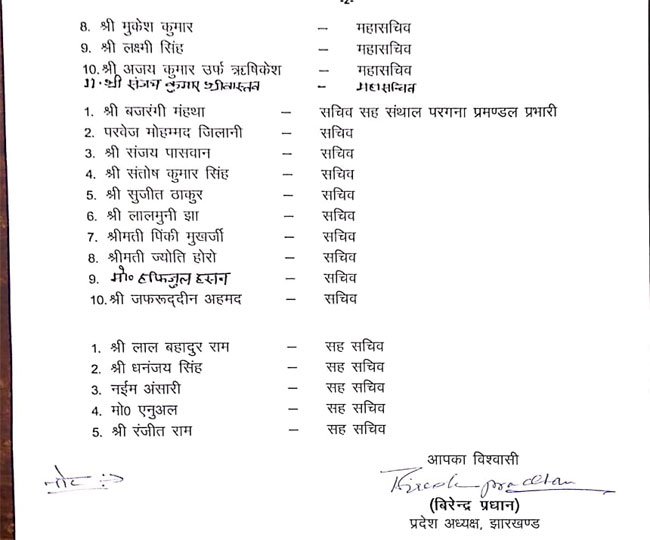 -2-
8. श्री मुकेश कुमार – महासचिव
9. श्री लक्ष्मी सिंह – महासचिव
10. श्री अजय कुमार उर्फ ऋषिकेश – महासचिव
11. श्री संजय कुमार श्रीवास्तव – महासचिव
1. श्री बजरंगी मंहथा – सचिव सह संथाल परगना प्रमण्डल प्रभारी
2. परवेज मोहम्मद जिलानी – सचिव
3. श्री संजय पासवान – सचिव
4. श्री संतोष कुमार सिंह – सचिव
5. श्री सुजीत ठाकुर – सचिव
6. श्री लालमुनी झा – सचिव
7. श्रीमती पिंकी मुखर्जी – सचिव
8. श्रीमती ज्योति होरो – सचिव
9. मो० हफिजुल हसन – सचिव
10. श्री जफरूद्दीन अहमद – सचिव
1. श्री लाल बहादुर राम – सह सचिव
2. श्री धनंजय सिंह – सह सचिव
3. नईम अंसारी – सह सचिव
4. मो0 एनुअल – सह सचिव
5. श्री रंजीत राम – सह सचिव
आपका विश्वासी
नोट :-
(बिरेन्द्र प्रधान)
प्रदेश अध्यक्ष, झारखण्ड